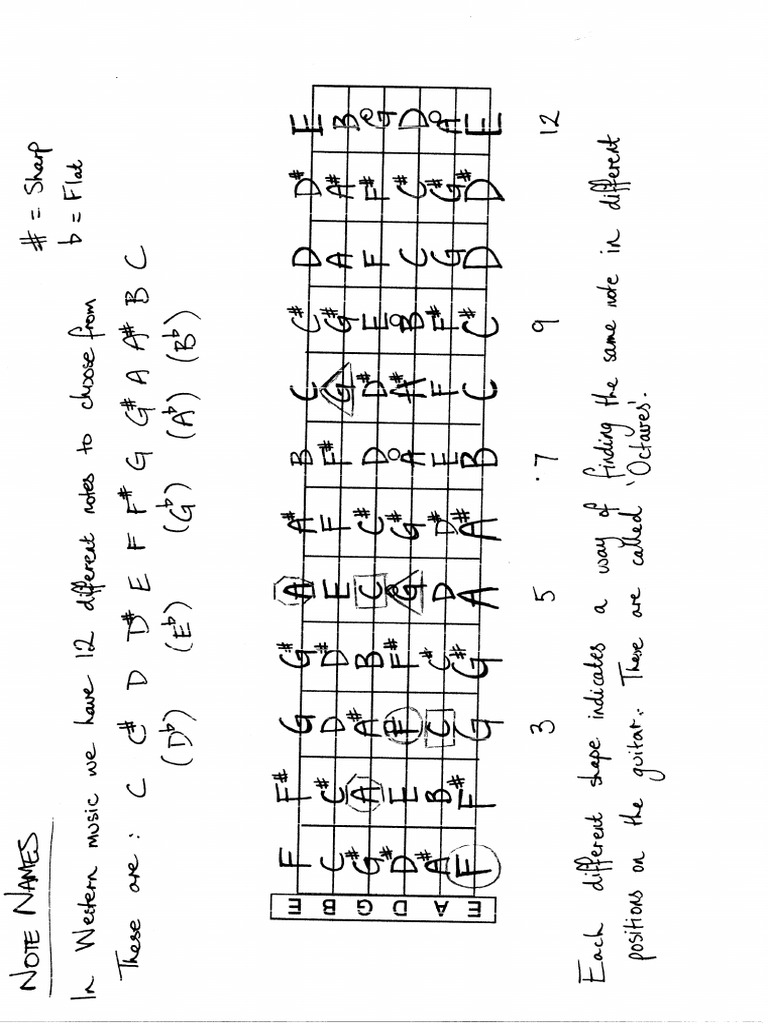 NOTE NAMES
# = Sharp
b = Flat
In Western music we have 12 different notes to choose from
These are : C C# D D# E F F# G G# A A# B C
(Db) (Eb) (Gb) (Ab) (Bb)
E F F# G G# A A# B C C# D D# E
B C C# D D# E F F# G G# A A# B
G G# A A# B C C# D D# E F F# G
D D# E F F# G G# A A# B C C# D
A A# B C C# D D# E F F# G G# A
E F F# G G# A A# B C C# D D# E
3 5 7 9 12
Each different shape indicates a way of finding the same note in different
positions on the guitar. These are called 'Octaves'.